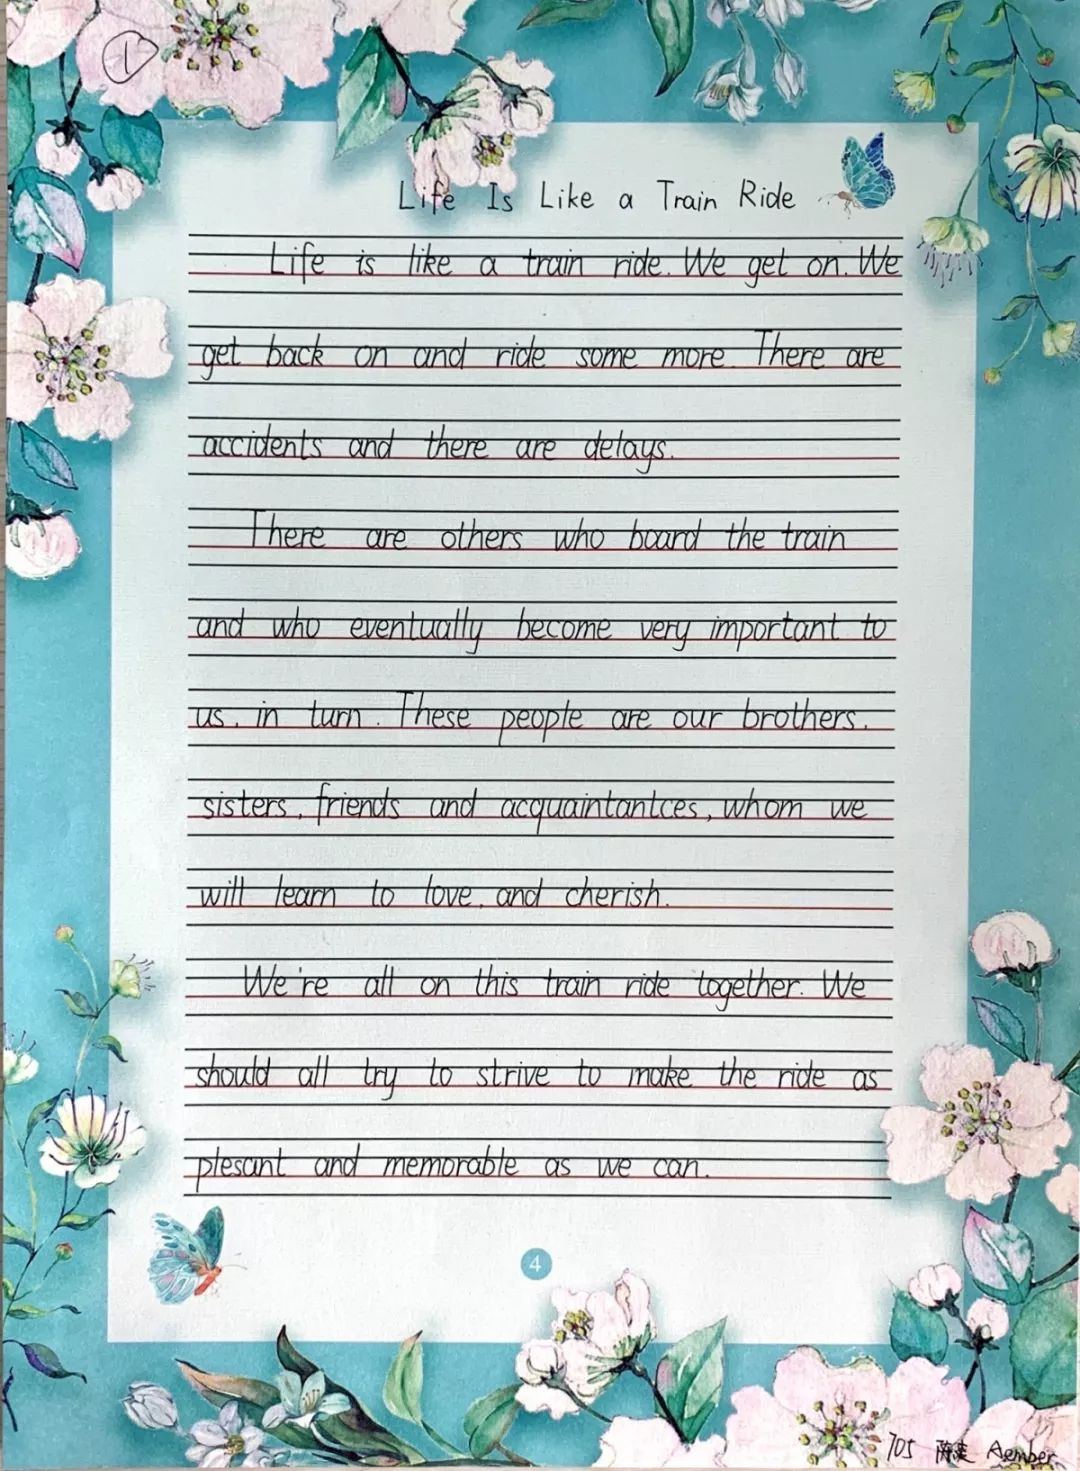 1
Life Is Like a Train Ride
Life is like a train ride. We get on. We
get back on and ride some more. There are
accidents and there are delays.
There are others who board the train
and who eventually become very important to
us, in turn. These people are our brothers,
sisters, friends and acquaintantces, whom we
will learn to love, and cherish.
We're all on this train ride together. We
should all try to strive to make the ride as
plesant and memorable as we can.
4
705 陈 Aember